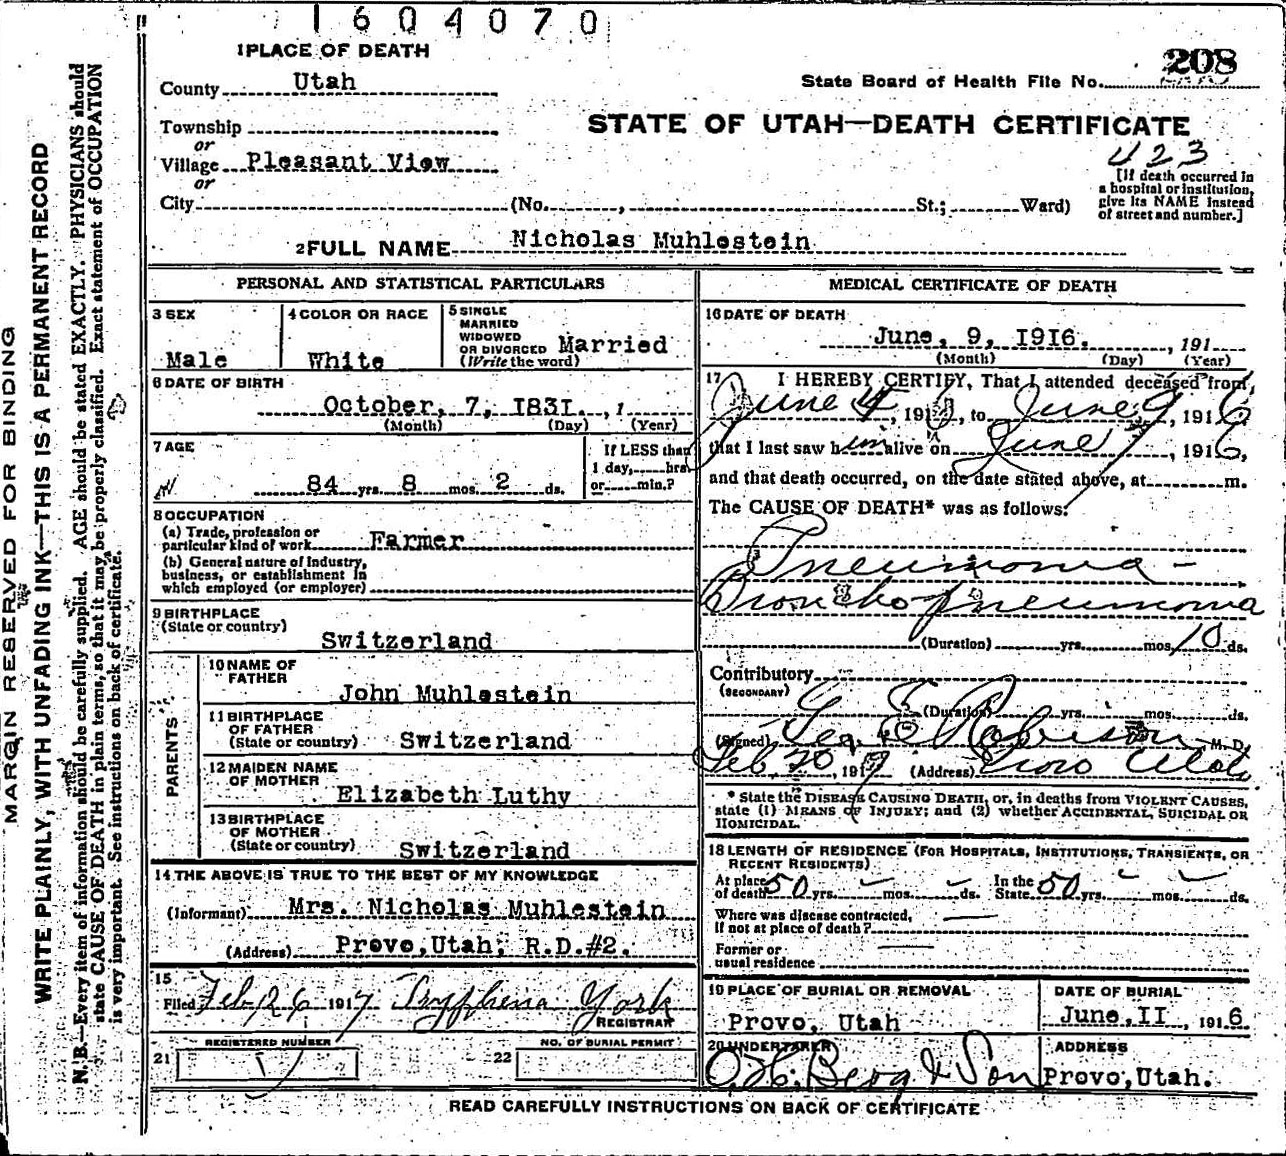 1604070
1 PLACE OF DEATH
208
County Utah
State Board of Health File No.
Township
STATE OF UTAH—DEATH CERTIFICATE
or
423
Village Pleasant View
or
[If death occurred in
a hospital or institution,
give its NAME instead
of street and number.]
City (No. , St.; Ward)
2 FULL NAME Nicholas Muhlestein
PERSONAL AND STATISTICAL PARTICULARS
3 SEX
Male
4 COLOR OR RACE
White
5 SINGLE
MARRIED
WIDOWED
OR DIVORCED Married
(Write the word)
6 DATE OF BIRTH
October, 7, 1831. , 1
(Month) (Day) (Year)
7 AGE
84 yrs. 8 mos. 2 ds.
If LESS than
1 day, hrs.
or min.?
8 OCCUPATION
(a) Trade, profession or
particular kind of work Farmer
(b) General nature of industry,
business, or establishment in
which employed (or employer)
9 BIRTHPLACE
(State or country)
Switzerland
PARENTS
10 NAME OF
FATHER
John Muhlestein
11 BIRTHPLACE
OF FATHER
(State or country) Switzerland
12 MAIDEN NAME
OF MOTHER
Elizabeth Luthy
13 BIRTHPLACE
OF MOTHER
(State or country) Switzerland
14 THE ABOVE IS TRUE TO THE BEST OF MY KNOWLEDGE
(Informant) Mrs. Nicholas Muhlestein
(Address) Provo, Utah, R.D.#2.
15
Filed Feb. 26 1917 Tryphena York
REGISTRAR
REGISTERED NUMBER
21
NO. OF BURIAL PERMIT
22
MEDICAL CERTIFICATE OF DEATH
16 DATE OF DEATH
June, 9, 1916. , 191
(Month) (Day) (Year)
17 I HEREBY CERTIFY, That I attended deceased from
June 4, 1916, to June 9, 1916
that I last saw him alive on June 7, 1916,
and that death occurred, on the date stated above, at m.
The CAUSE OF DEATH* was as follows:
Pneumonia –
Broncho pneumonia
(Duration) yrs. mos. 10 ds.
Contributory
(SECONDARY)
(Duration) yrs. mos. ds.
(Signed) Geo. E. Robison M. D.
Feb 20, 1917 (Address) Provo Utah
* State the DISEASE CAUSING DEATH, or, in deaths from VIOLENT CAUSES,
state (1) MEANS OF INJURY; and (2) whether ACCIDENTAL, SUICIDAL OR
HOMICIDAL.
18 LENGTH OF RESIDENCE (FOR HOSPITALS, INSTITUTIONS, TRANSIENTS, OR
RECENT RESIDENTS)
At place of death 50 yrs. – mos. – ds. In the State 50 yrs. – mos. – ds.
Where was disease contracted,
If not at place of death? —
Former or
usual residence —
19 PLACE OF BURIAL OR REMOVAL
Provo, Utah
DATE OF BURIAL
June, 11 , 1916
20 UNDERTAKER
O. H. Berg & Son
ADDRESS
Provo, Utah.
READ CAREFULLY INSTRUCTIONS ON BACK OF CERTIFICATE
MARGIN RESERVED FOR BINDING
WRITE PLAINLY, WITH UNFADING INK—THIS IS A PERMANENT RECORD
N. B.—Every item of information should be carefully supplied. AGE should be stated EXACTLY. PHYSICIANS should
state CAUSE OF DEATH in plain terms, so that it may be properly classified. Exact statement of OCCUPATION
is very important. See instructions on back of certificate.